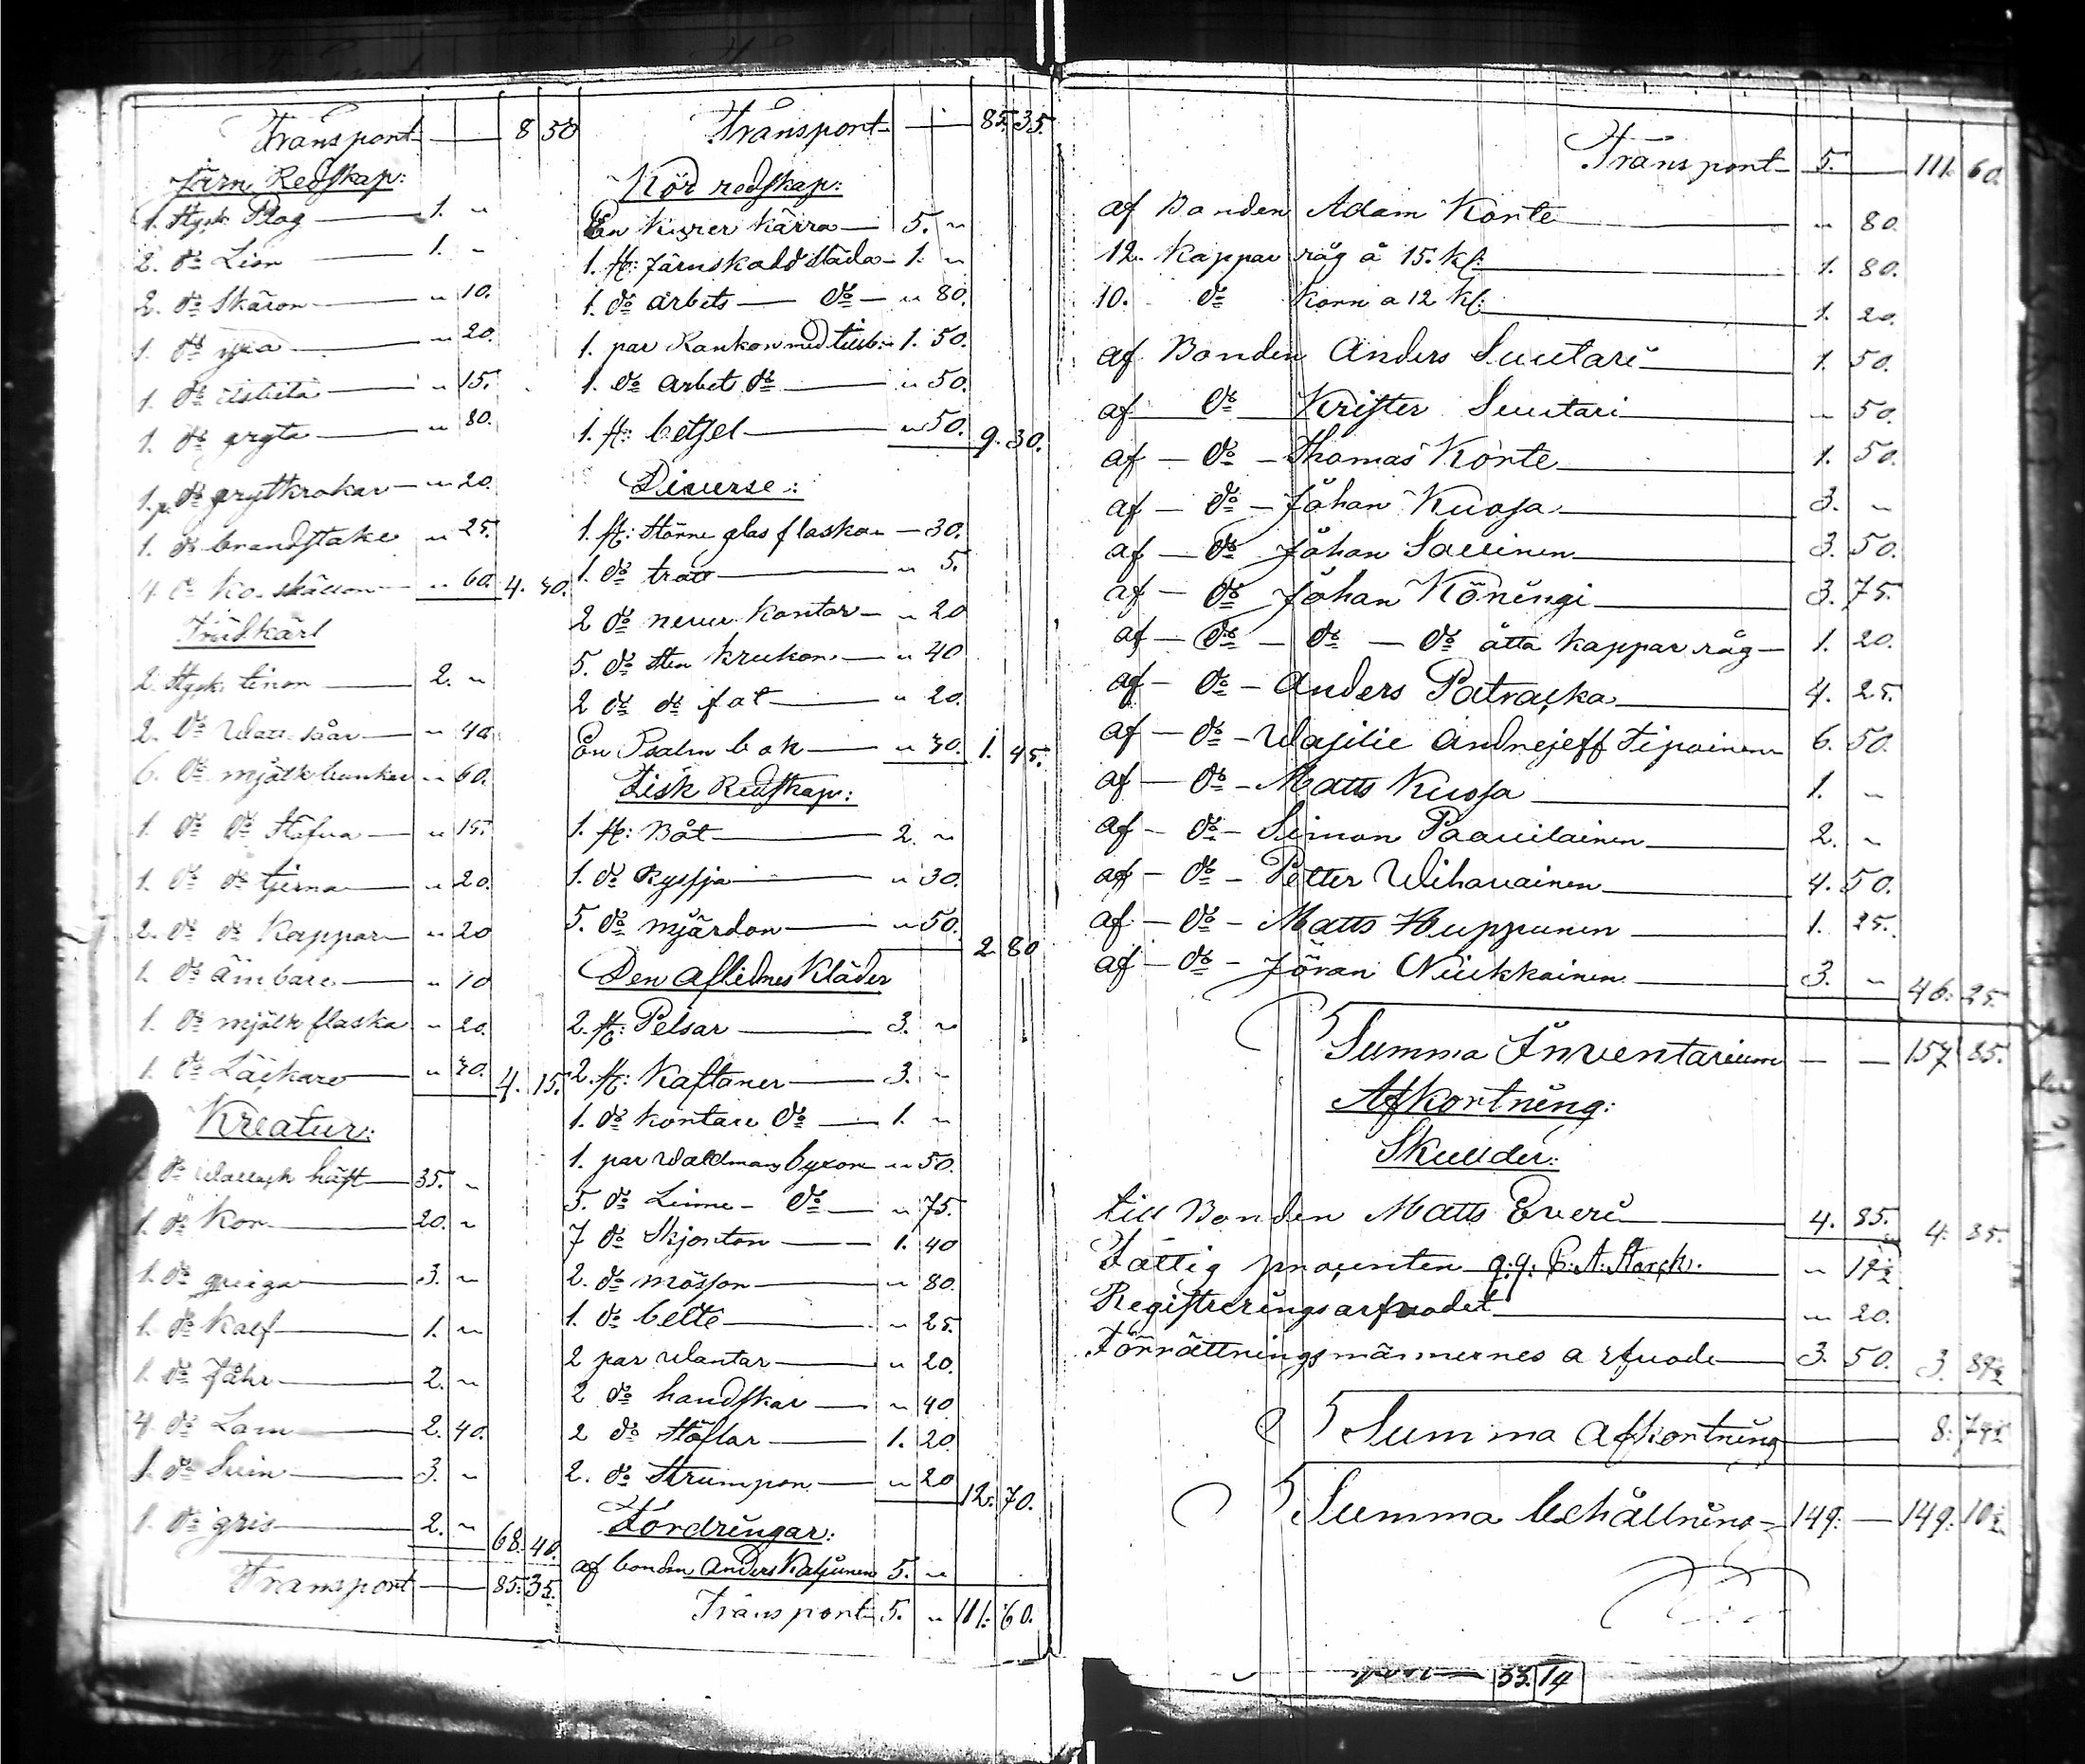 Transport — 8 50
Järn Redskap:
1. Styck Plog — 1. "
2. do Lior — 1. "
2. do Skäror — " 10.
1. do yxa — " 20.
1. do — " 15.
1. do gryta — " 80.
1. p. do grytkrokar — " 20
1. do brandstake " 25.
4 do Ko skällor — " 60. 4. 30.
Trädkärl
2. Styck tinor — 2. "
2. do Watt såar — " 40.
6. do mjölk bunkar " 60.
1. do do Stäfva — " 15.
1. do do tjerna — " 20.
2. do do Kappar — " 20
1. do ämbare — " 10
1. do mjölk flaska " 20.
1. do Läckare — " 30. 4. 15.
Kreatur:
do Wallack häst — 35. "
1. do Kor — 20. "
1. do quiga — 3. "
1. do Kalf — 1. "
1. do Fåhr — 2. "
4 do Lam — 2. 40.
1. do Suin — 3. "
1. do gris — 2. " 68. 40.
Transport — 85. 35.
Transport — 85. 35.
Kör redskap:
En Kärra — 5. "
1. st: Järnskodd Släda — 1. "
1. do arbets — do — " 80.
1. par Rankor med — 1. 50.
1. do arbet do — " 50.
1. st: betsel — " 50. 9. 30.
Diverse:
1. st: Större glas flaska — 30.
1. do tratt — " 5.
2 do never Kontar — " 20
5. do Sten krukor — " 40
2 do do fat — " 20.
En Psalm bok — " 30. 1. 45.
Fisk Redskap:
1. st: Båt — 2. "
1. do Ryssja — " 30.
5. do mjärdar — " 50. 2. 80
Den Aflidnes Kläder
2. st: Pelsar — 3. "
2. st: Kaftaner — 3. "
1. do kortare do — 1. "
1. par waldmans byxor " 50.
5. do Linne - do — " 75.
7 do Skjortor — 1. 40
2. do mössor — " 80.
1. do bette — " 25.
2 par wantar — " 20.
2 do handskar — " 40
2 do Stöflar — 1. 20
2. do Strumpor — " 20 12. 70.
Fordringar:
af bonden Anders Katjunen 5. "
Transport 5. " 111. 60.
Transport 5. — 111. 60.
af Bonden Adam Korte — " 80.
12. Kappar råg à 15. — 1. 80.
10. do Korn a 12 — 1. 20.
af Bonden Anders Suutari — 1. 50.
af do Krister Suutari — " 50.
af — do — Thomas Korte — 1. 50.
af — do — Johan Kuosa — 3. "
af — do Johan Savinen — 3. 50.
af — do Johan Köningi — 3. 75.
af — do — do — do åtta kappar råg — 1. 20.
af — do — Anders Patracka — 4. 25.
af — do — Wasilie Andrejeff Tipainen 6. 50.
af — do — Matts Kuosa — 1. "
af — do — Simon Paavilainen — 2. "
af — do — Petter Wihavainen — 4. 50.
af — do — Matts Huppunen — 1. 25.
af — do — Jöran Niukkainen — 3. " 46. 25.
Summa Inventarium — — 157 85.
Afkortning:
Skulder:
till Bonden Matts Everi — 4. 85. 4. 85.
Fattig procenten — " 19½
Registreringsarfvodet — " 20.
Förrättningsmännernes arfvode — 3. 50. 3. 89½
Summa Afkortning — 8. 74½
Summa behållning — 149. — 149. 10½
33. 14